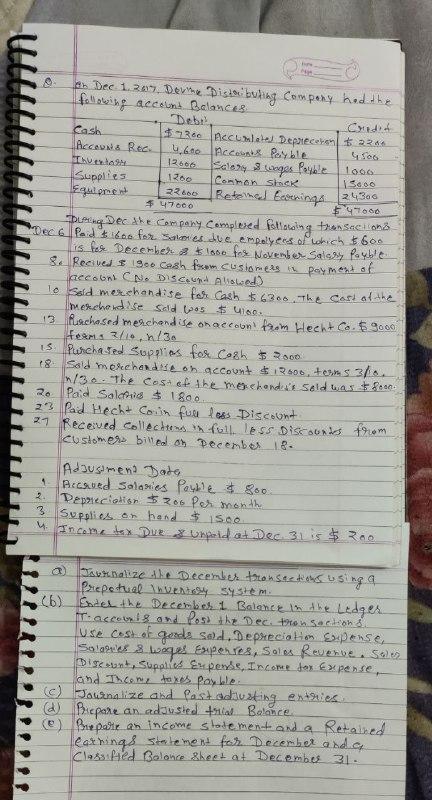 Date
Page
Q. On Dec. 1, 2017, Devine Distributing Company had the
following account Balances.
Debit Credit
Cash $ 7200 Accumlated Deprecation $ 2200
Accounts Rec. 4,600 Accounts Payble 4500
Inventory 12000 Salary & wages Payble 1000
Supplies 1200 Common stock 15000
Equipment 22000 Retained Earnings 24300
$ 47000 $ 47000
During Dec the Company Completed following transactions
Dec 6 Paid $ 1600 for Salaries due empolyees of which $ 600
is for December & $ 1000 for November Salary Payble.
8. Recived $ 1900 cash from Customers in payment of
account (No Discount Allowed)
10 Sold merchandise for Cash $ 6300. The Cost of the
merchandise sold was $ 4100.
13. Purchased merchandise on account from Hecht Co. $ 9000
terms 2/10, n/30
15. Purchased Supplies for Cash $ 2000
18. Sold merchandise on account $ 12000, terms 3/10,
n/30. The Cost of the merchandise sold was $ 8000.
20 Paid Salaries $ 1800.
23 Paid Hecht Co. in full less Discount.
27 Received Collections in full less Discounts from
Customers billed on December 18.
Adjusment Data
1. Accrued Salaries Payble $ 800.
2. Depreciation $ 200 Per month
3 Supplies on hand $ 1500.
4. Income tax Due & Unpaid at Dec. 31 is $ 200
a) Journalize the December transactions using a
Prepetual Inventory system.
(b) Enter the December 1 Balance in the Ledger
T-accounts and Post the Dec. transactions.
Use Cost of goods sold, Depreciation Expense,
Salaries & wages Expenses, Sales Revenue, Sales
Discount, Supplies Expense, Income tax Expense,
and Income taxes Payble.
(c) Journalize and Post adjusting entries.
(d) Prepare an adjusted trial Balance.
(e) Prepare an income statement and a Retained
earnings statement for December and a
Classified Balance sheet at December 31.